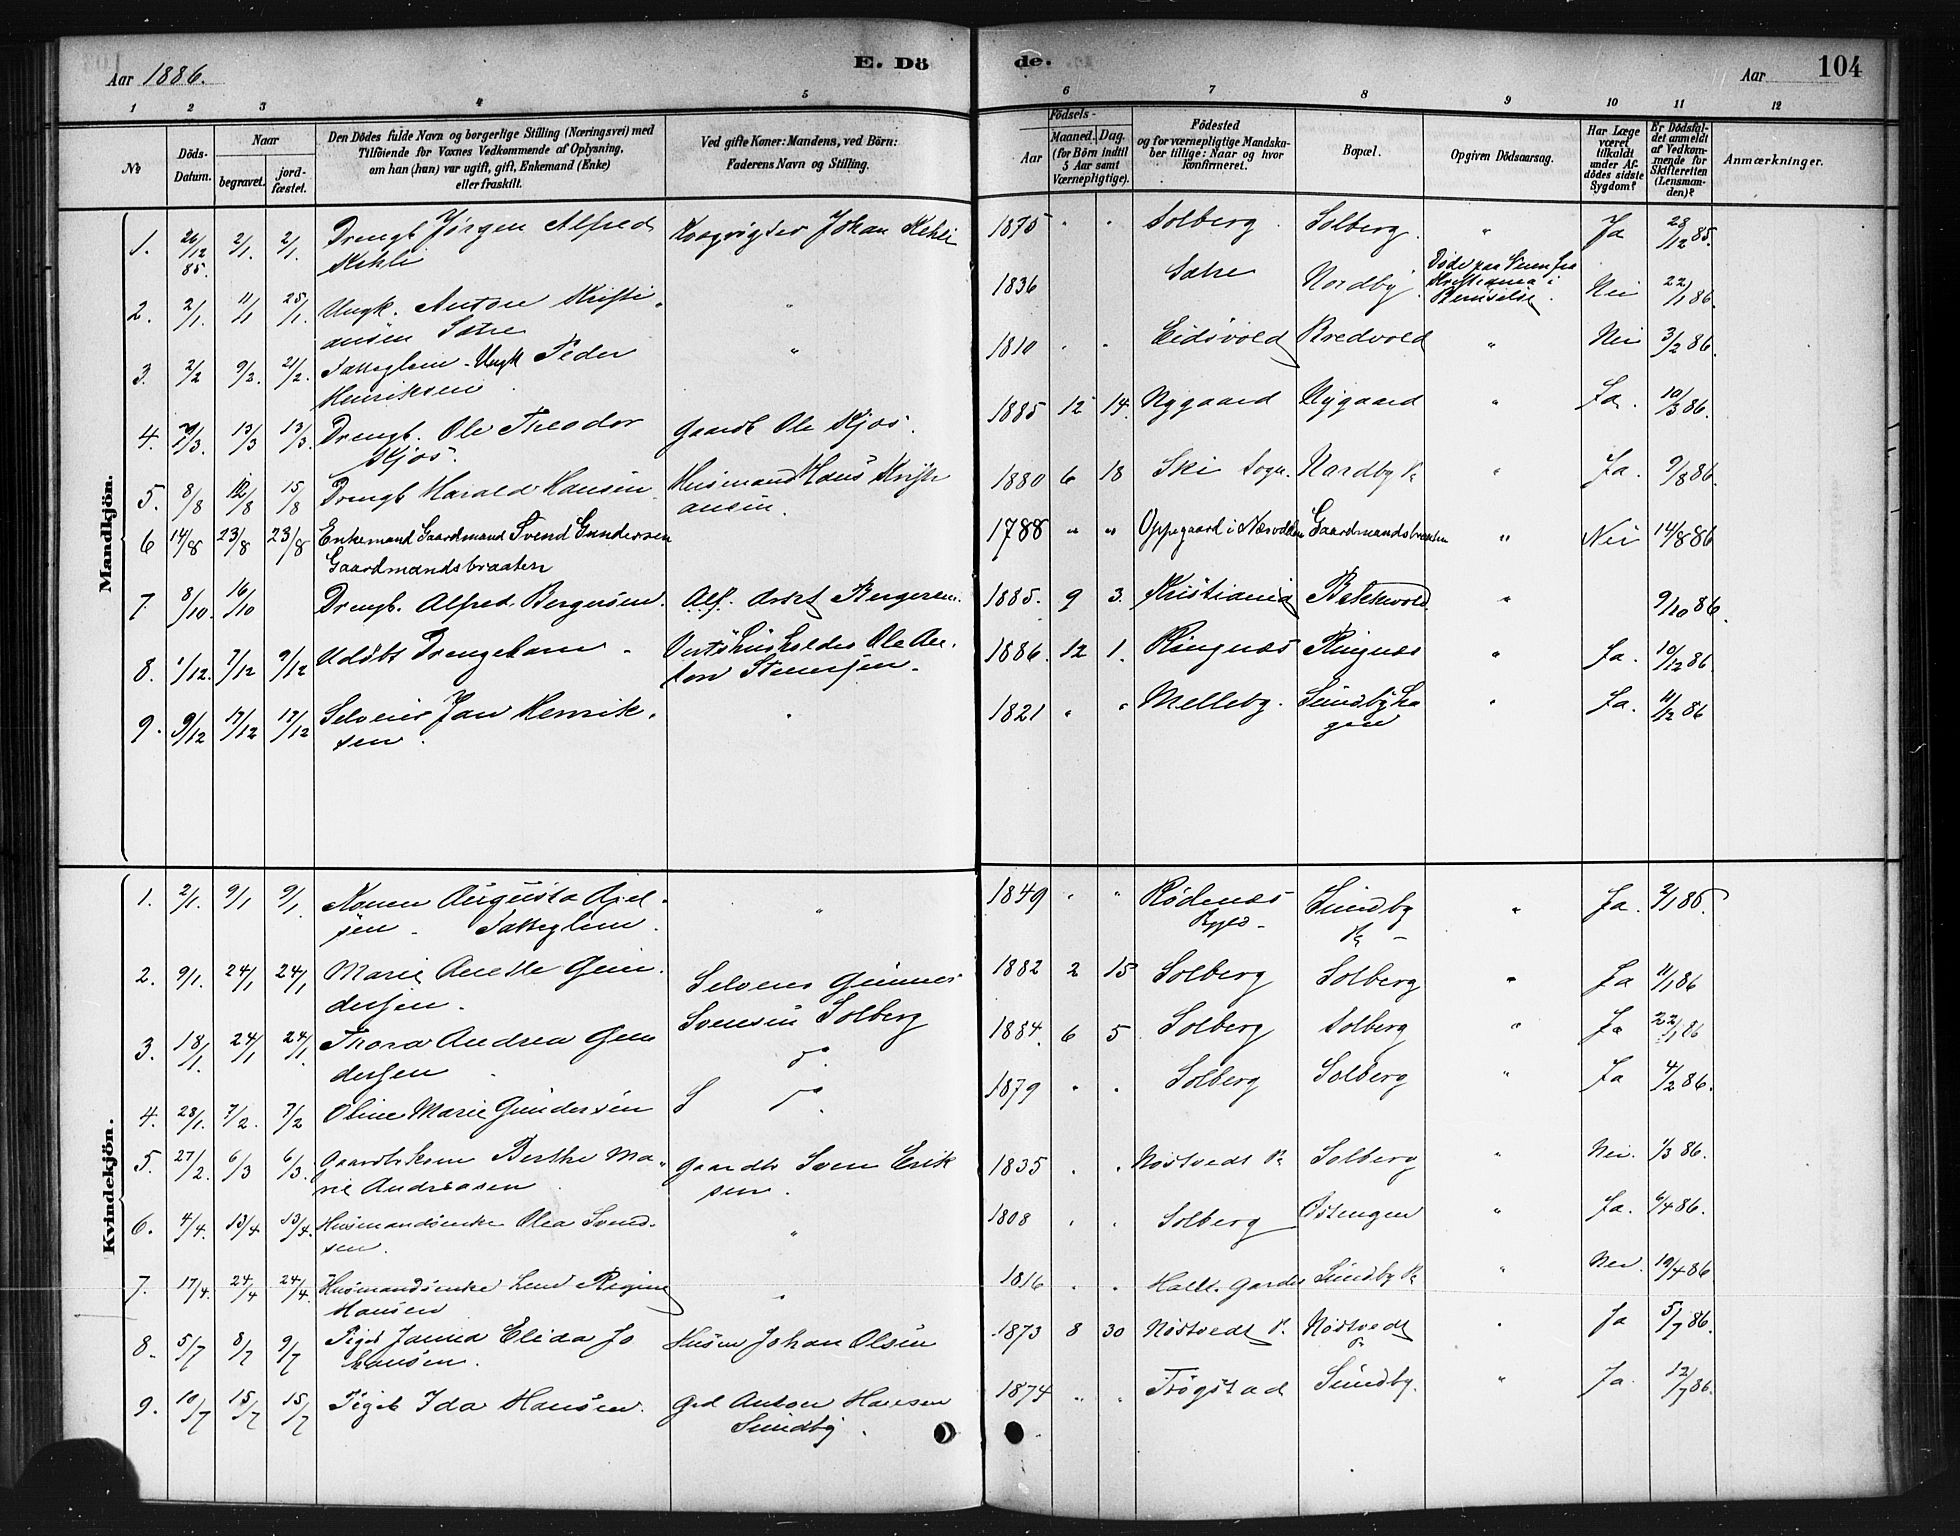 Aar 1886.
E. Dö
de.
Aar
104
1 2 3 4 5 6 7 8 9 10 11 12
№
Döds-
Datum.
Naar
begravet.
jord-
fæstet.
Den Dödes fulde Navn og borgerlige Stilling (Næringsvei) med
Tilföiende for Voxnes Vedkommende af Oplysning,
om han (hun) var ugift, gift, Enkemand (Enke)
eller fraskilt.
Ved gifte Koner: Mandens, ved Börn:
Faderens Navn og Stilling.
Födsels-
Aar
Maaned. Dag.
(for Börn indtil
5 Aar samt
Værnepligtige).
Födested
og for værnepligtige Mandska-
ber tillige: Naar og hvor
konfirmeret.
Bopæl.
Opgiven Dödsaarsag.
Har Læge
været
tilkaldt
under Af-
dödes sidste
Sygdom?
Er Dödsfal-
det anmeldt
af Vedkom-
mende for
Skifteretten
(Lensman-
den)?
Anmærkninger.
Mandkjön.
1. 26/12 85. 2/1. 2/1. Drengb Jørgen Alfred Johan 1875 " " Solberg. Solberg. " Ja 28/12 85.
2. 2/1. 11/1 25/1. Ungk. Anton Kristi-
ansen Sætre " 1836 Sætre Nordby. Døde paa Veien fra
Kristiania i
Beruselse. Nei 22/1 86.
3. 2/2 9/2. 21/2. Ungk Peder
Henriksen " 1810 " " Eidsvold Bredvold " Nei 3/2 86.
4. 13/3 13/3. Drengb. Ole Theodor
Kjos. Gaardb Ole Kjos. 1885 12 14. Nygaard Nygaard " Ja. 10/3 86.
5. 8/8 12/8 15/8 Drengb Harald Hansen Husmand Hans Kristi
ansen. 1880 6 18 Ski Sogn. Nordby " Ja. 9/8 86.
6 14/8 23/8 23/8 Enkemand Gaardmand Svend Gundersen
Gaardmandsbraaten 1788 " " Oppegaard i Næsodden Gaardmandsbraaten " Nei 14/8 86
7. 8/10. 16/10 Drengb. Alfred Bergersen. Bergersen. 1885. 9 3. Kristiania " 9/10 86.
8. 1/12. 7/12 9/12 Udöbt Drengebarn Vertshusholder Ole An-
ton Stenersen. 1886. 12 1. Ringnæs Ringnæs " Ja. 10/12 86.
9. 9/12 17/12 17/12 Selveier Jan Henrik-
sen. " 1821 " " Melleby. Sundbyha
gen " Ja. 11/12 86
Kvindekjön.
1. 2/1. 9/1 9/1. Augusta
sen. " 1849 " " Rödenæs Sundby " Ja. 2/1 86.
2. 9/1. 24/1 24/1 Marie Anette Gun-
dersen. Selveier Gunnes
Svensen Solberg 1882 2 15 Solberg Solberg " Ja 11/1 86
3. 18/1. 24/1 24/1. Thora Andrea Gun
dersen do. 1884. 6 5 Solberg Solberg " Ja 22/1 86
4. 28/1. 7/2. 7/2 Oline Marie Gundersen do. 1879 " " Solberg Solberg " Ja 4/2 86.
5. 27/2. 6/3 6/3. Berthe Ma-
rie Andreasen. Gaardb Sven Erik
sen. 1835 " " Nöstvedt Solberg " Nei. 1/3 86.
6. 4/4. 13/4 13/4. Husmandsenke Olea Svend-
sen. " 1808 " " Solberg Östengen " Ja. 6/4 86.
7. 17/4. 24/4 24/4. Husmandsenke Regine
Hansen " 1816 " " Sundby " Nei. 19/4 86
8. 5/7 8/7 9/7 Pigeb Janna Elida Jo
hansen. Husm Johan Olsen 1873 8 30 Nöstvedt Nöstvedt " Ja 5/7 86.
9. 10/7 15/7 15/7 Pigeb Ida Hansen. Anton Hansen
Sundby. 1874 " " Trögstad Sundby. " Ja. 12/7 86.